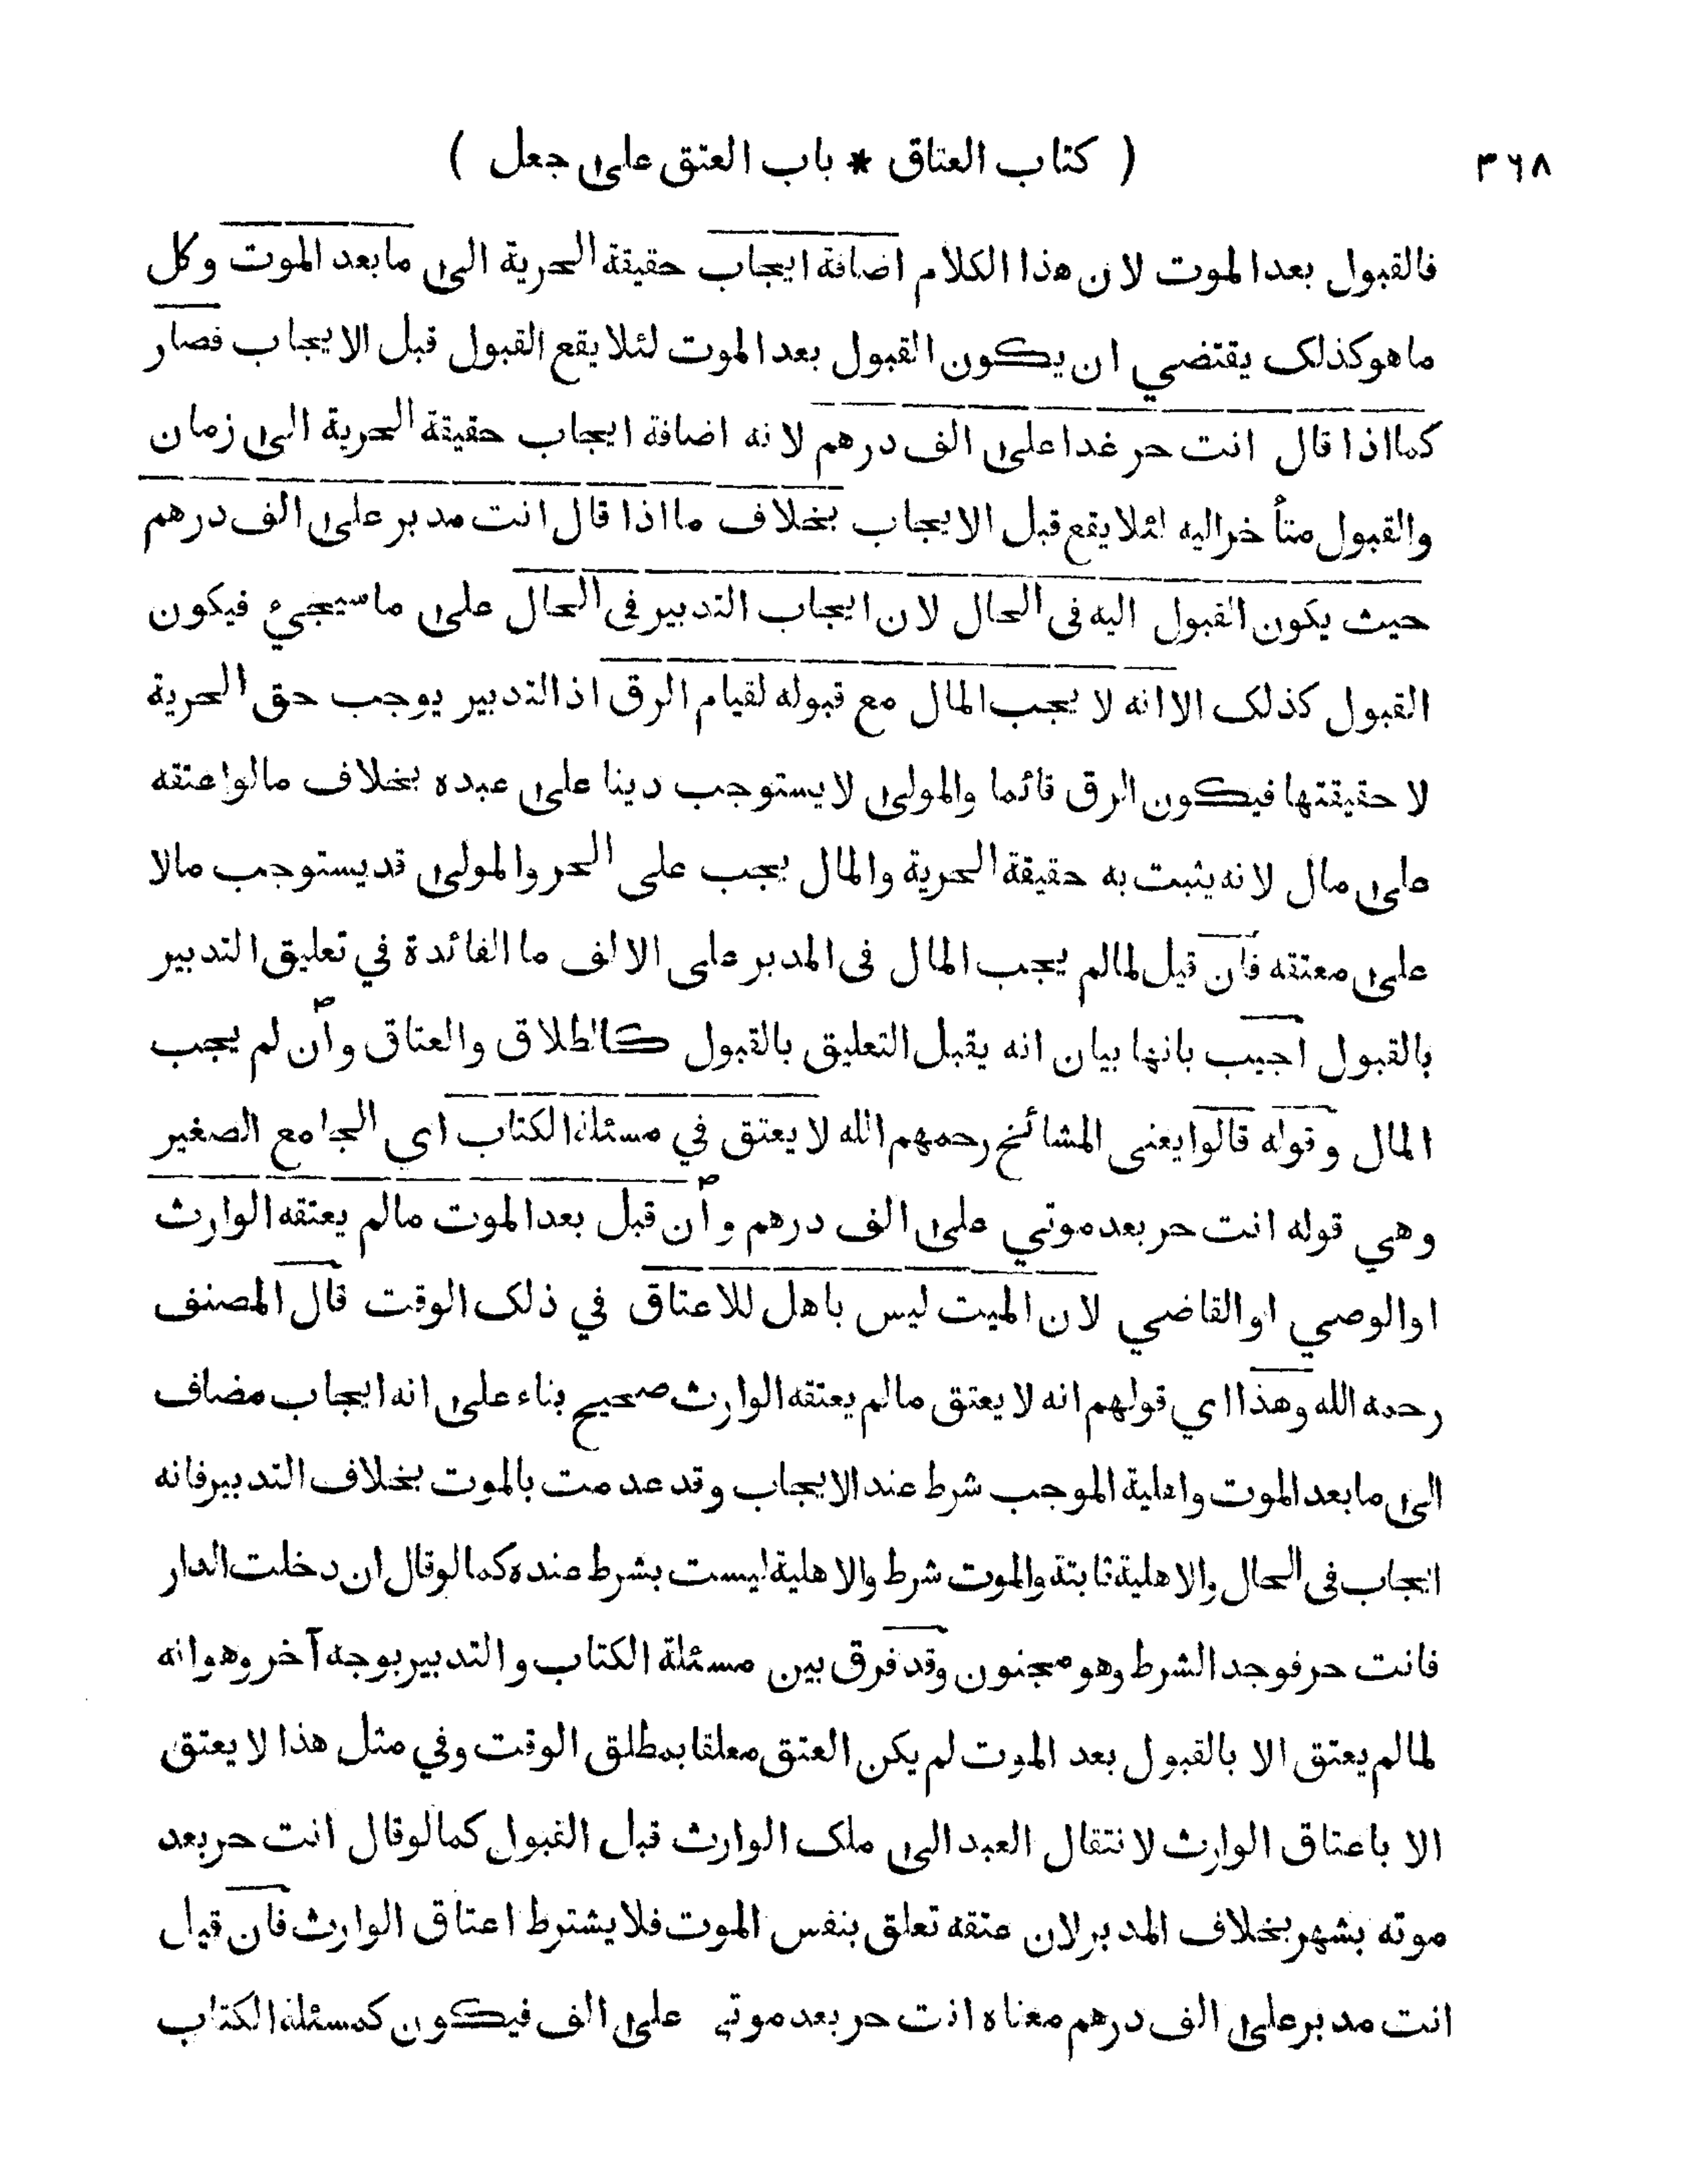 ٣٦٨ ( كتاب العتاق * باب العتق على جعل )
فالقبول بعد الموت لان هذا الكلام اضافة ايجاب حقيقة الحرية الى ما بعد الموت وكل
ما هو كذلك يقتضي ان يكون القبول بعد الموت لئلا يقع القبول قبل الايجاب فصار
كما اذا قال انت حر غدا على الف درهم لانه اضافة ايجاب حقيقة الحرية الى زمان
والقبول متأخر اليه لئلا يقع قبل الايجاب بخلاف ما اذا قال انت مدبر على الف درهم
حيث يكون القبول اليه في الحال لان ايجاب التدبير في الحال على ما سيجيء فيكون
القبول كذلك الا انه لا يجب المال مع قبوله لقيام الرق اذ التدبير يوجب حق الحرية
لا حقيقتها فيكون الرق قائما والمولى لا يستوجب دينا على عبده بخلاف ما لو اعتقه
على مال لانه يثبت به حقيقة الحرية والمال يجب على الحر والمولى قد يستوجب مالا
على معتقه فان قيل لما لم يجب المال في المدبر على الالف ما الفائدة في تعليق التدبير
بالقبول اجيب بانها بيان انه يقبل التعليق بالقبول كالطلاق والعتاق وان لم يجب
المال وقوله قالوا يعنى المشائخ رحمهم الله لا يعتق في مسئلة الكتاب اي الجامع الصغير
وهي قوله انت حر بعد موتي على الف درهم وان قبل بعد الموت مالم يعتقه الوارث
او الوصي او القاضي لان الميت ليس باهل للاعتاق في ذلك الوقت قال المصنف
رحمه الله وهذا اي قولهم انه لا يعتق مالم يعتقه الوارث صحيح بناء على انه ايجاب مضاف
الى ما بعد الموت واهلية الموجب شرط عند الايجاب وقد عدمت بالموت بخلاف التدبير فانه
ايجاب في الحال والاهلية ثابتة والموت شرط والاهلية ليست بشرط عنده كما لو قال ان دخلت الدار
فانت حر فوجد الشرط وهو مجنون وقد فرق بين مسئلة الكتاب والتدبير بوجه آخر وهو انه
لما لم يعتق الا بالقبول بعد الموت لم يكن العتق معلقا بمطلق الوقت وفي مثل هذا لا يعتق
الا باعتاق الوارث لانتقال العبد الى ملك الوارث قبل القبول كما لو قال انت حر بعد
موته بشهر بخلاف المدبر لان عتقه تعلق بنفس الموت فلا يشترط اعتاق الوارث فان قيل
انت مدبر على الف درهم معناه انت حر بعد موتي على الف فيكون كمسئلة الكتاب